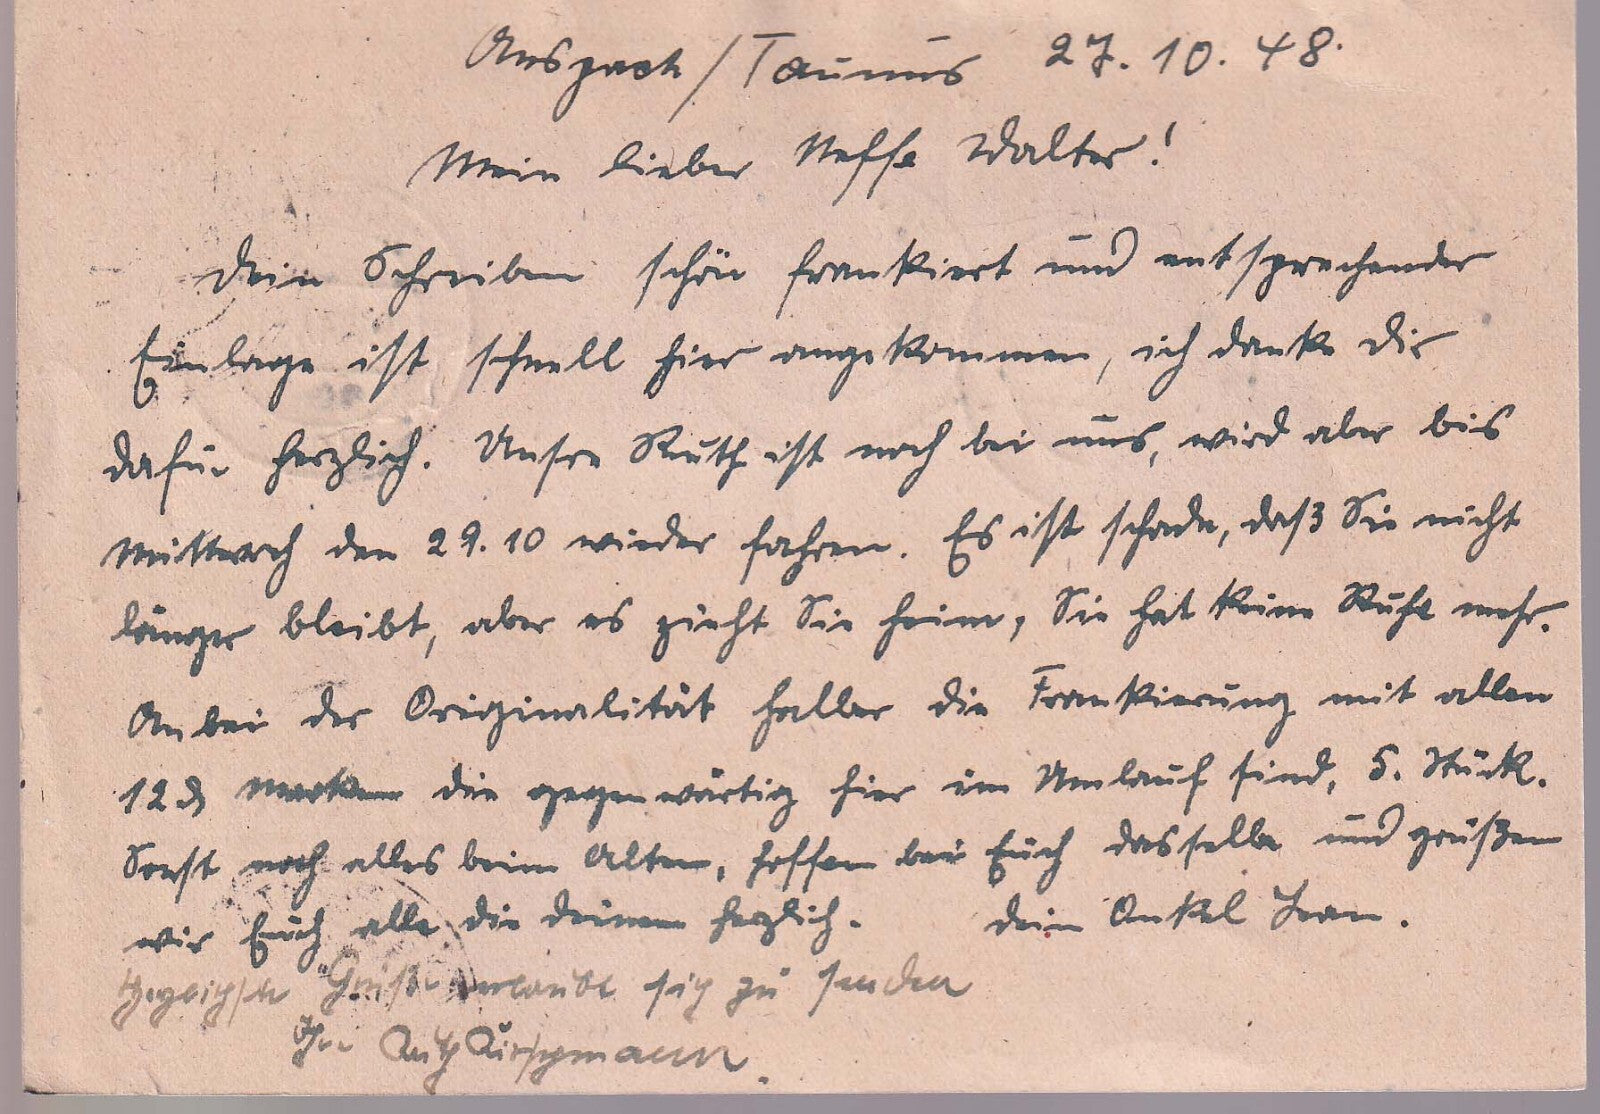 Anspach / Taunus 27. 10. 48.
Mein lieber Neffe Walter!
Dein Schreiben schön frankiert und entsprechender
Einlage ist schnell hier angekommen, ich danke dir
dafür herzlich. Unsre Ruth ist noch bei uns, wird aber bis
Mittwoch den 29.10 wieder fahren. Es ist schade, daß Sie nicht
länger bleibt, aber es zieht Sie heim, Sie hat keine Ruhe mehr.
Anbei der Originalität halber die Frankierung mit allen
12 ₰ Marken die gegenwärtig hier im Umlauf sind, 5. Stück.
Sonst noch alles beim Alten, hoffen bei Euch dasselbe und grüßen
wir Euch alle die deinen herzlich. dein Onkel Jean.
Herzlichste Grüße erlaubt sich zu senden
Ihre Ruth